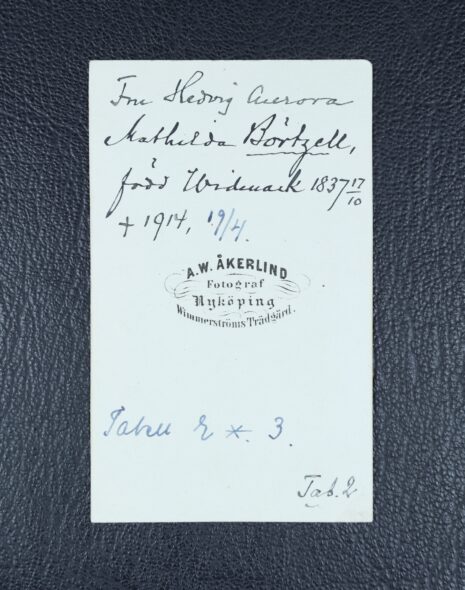 Fru Hedvig Aurora
Mathilda Börtzell,
född Widmark 1837 17/10
+ 1914, 19/4.
A.W. ÅKERLIND
Fotograf
Nyköping
Wimmerströms Trädgård.
Tabell 2 *. 3.
Tab. 2